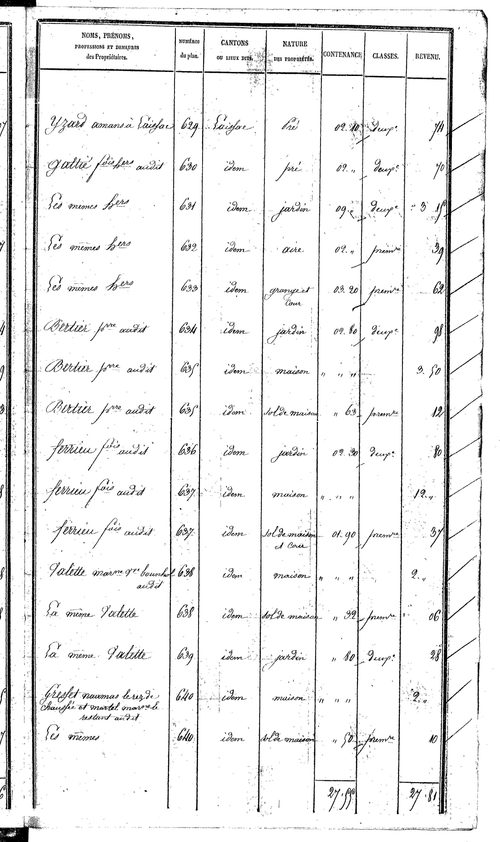 NOMS, PRÉNOMS, PROFESSIONS ET DEMEURES des Propriétaires. NUMÉROS du plan. CANTONS OU LIEUX DITS. NATURE DES PROPRIÉTÉS. CONTENANCE. CLASSES. REVENU.
Yzard amans à Laissac 629 Laissac Pré 02. 10 deuxe 74
Gattié fois hers audit 630 idem pré 02. " deuxe 70
Les mêmes hers 631 idem jardin 09. " deuxe 3 15
Les mêmes hers 632 idem aire 02. " premre 39
Les mêmes hers 633 idem grange et cour 03. 20 premre 62
Bertier pre audit 634 idem jardin 02. 80 deuxe 98
Bertier pre audit 635 idem maison " " " 3. 50
Bertier pre audit 635 idem sol de maison " 63 premre 12
ferrieu fois audit 636 idem jardin 02. 30 deuxe 80
ferrieu fois audit 637 idem maison " " " 12. "
ferrieu fois audit 637 idem sol de maison et cour 01. 90 premre 37
Valette marne audit 638 idem maison " " " 2. "
La même Valette 638 idem sol de maison " 32 premre 06
La même Valette 639 idem jardin " 80 deuxe 28
le rez de chaussée et martel le restant audit 640 idem maison " " " 2. "
Les mêmes 640 idem sol de maison " 50 premre 10
27. 55 27. 81